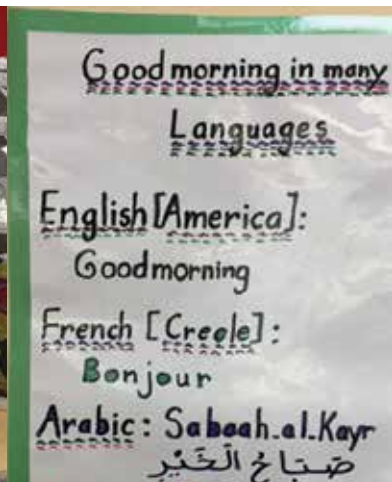 Good morning in many
Languages
English [America]:
Good morning
French [Creole]:
Bonjour
Arabic: Sabaah-al-Kayr
صَبَاحُ الْخَيْرِ